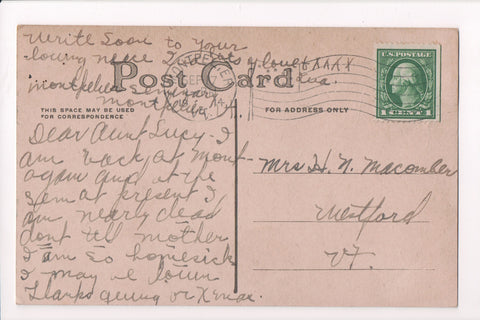 Write Soon to Your
loving niece
Montpelier Seminary
Montpelier
Post Card
THIS SPACE MAY BE USED
FOR CORRESPONDENCE
FOR ADDRESS ONLY
Dear Aunt Lucy - I
am back at Mont-
again and at the
Sem at present I
am nearly dead
dont tell mother
I am so homesick
I may be down
Thanksgiving or Xmas.
Mrs H. N. Macomber
Westford
Vt.
1 CENT 1